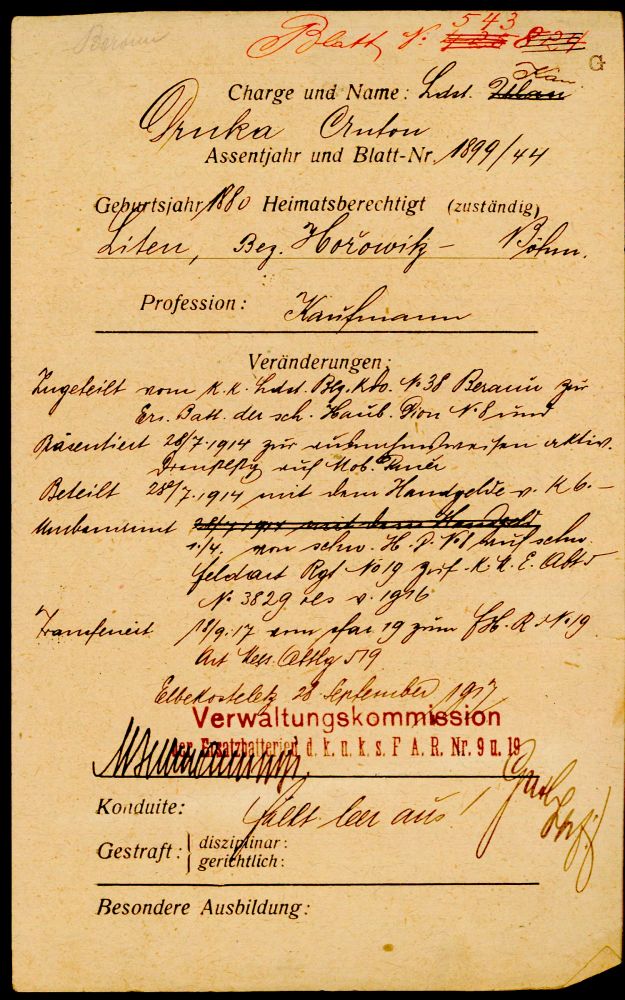 Beraun
Blatt № 543
G
Charge und Name: Ldst. Kan.
Druka Anton
Assentjahr und Blatt-Nr. 1899/44
Geburtsjahr 1880 Heimatsberechtigt (zuständig)
Liten, Bez. Hořowitz - Böhm.
Profession: Kaufmann
Veränderungen:
Zugeteilt vom k.k. Ldst. Bez. Kdo. № 38 Beraun zur
Ers. Batt. der sch. Haub. Dion № 8 und
Präsentiert 28/7.1914 zur ausnahmsweisen aktiv.
auf Mob. Dauer
Beteilt 28/7.1914 mit dem Handgelde v. K 6.-
Umbenannt 28/7 1914 mit dem Handgeld
1./4. von schw. H. D. № 8 auf schw.
feldart Rgt № 19 K.M.E. Abt 5
№ 3829 res v. 1916
Transferiert 18/9.17 vom sfar 19 zum FH.R № 19
Elbekosteletz 28 September 1917
Verwaltungskommission
der Ersatzbatterien d. k. u. k. s. F. A. R. Nr. 9 u. 19
Konduite: fällt leer aus!
Gestraft: disziplinar:
gerichtlich:
Besondere Ausbildung: